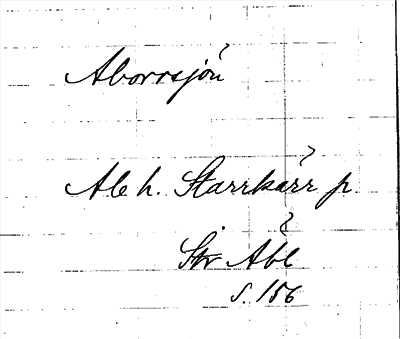 Aborrsjön
Ale h. Starrkärr p.
Str Abl
s. 156